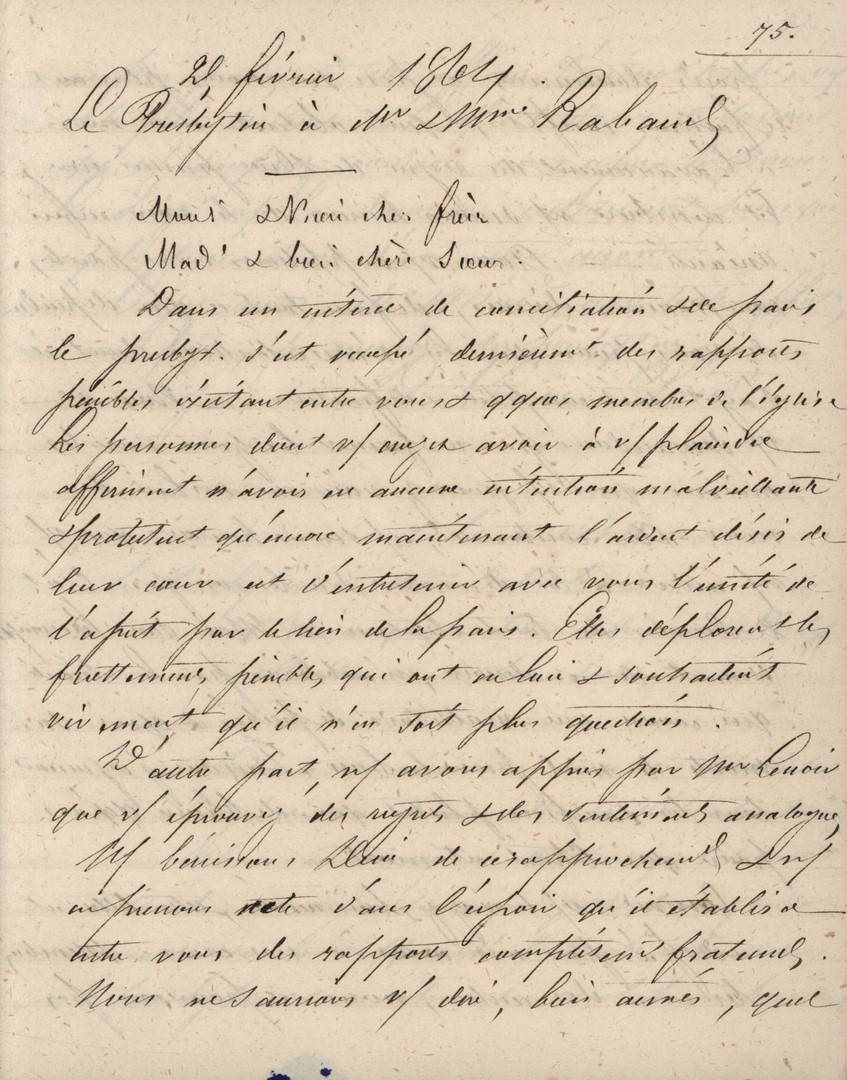 75.
2, février 1864.
Le Presbytère à Mr & Mme Rabaud
Mons' & bien cher frère
Mad' & bien chère soeur.
Dans un intérêt de conciliation & de paix
le presbyt. s'est occupé dernièremt des rapports
pénibles existant entre vous & qques membres de l'église
Les personnes dont v/ croyez avoir à v/ plaindre
affirment n'avoir eu aucune intention malveillante
& protestent qu'encore maintenant l'ardent désir de
leur coeur est d'entretenir avec vous l'unité de
l'esprit par le lien de la paix. Elles déplorent les
frottements pénibles qui ont eu lieu & souhaitent
vivement qu'il n'en soit plus question.
D'autre part, n/ avons appris par Mr Lenoir
que v/ éprouvez des regrets & des sentiments analogues,
N/ bénissons Dieu de ce rapprochemt & n/
en prenons acte dans l'espoir qu'il établisse
entre vous des rapports complètemt fraternels.
Nous ne saurions v/ dire, bien aimés, quel